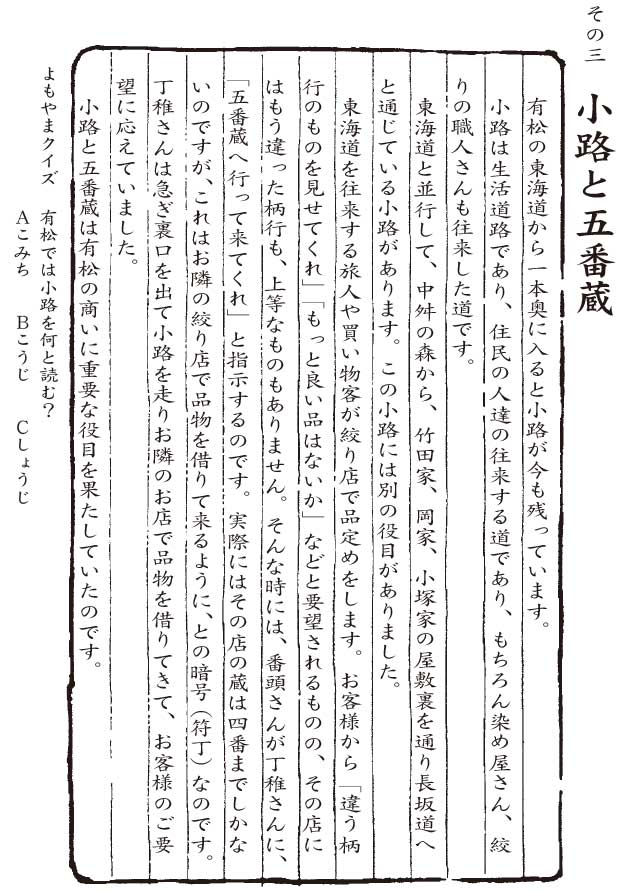 その三
小路と五番蔵
有松の東海道から一本奥に入ると小路が今も残っています。
小路は生活道路であり、住民の人達の往来する道であり、もちろん染め屋さん、絞
りの職人さんも往来した道です。
東海道と並行して、中舛の森から、竹田家、岡家、小塚家の屋敷裏を通り長坂道へ
と通じている小路があります。この小路には別の役目がありました。
東海道を往来する旅人や買い物客が絞り店で品定めをします。お客様から「違う柄
行のものを見せてくれ」「もっと良い品はないか」などと要望されるものの、その店に
はもう違った柄行も、上等なものもありません。そんな時には、番頭さんが丁稚さんに、
「五番蔵へ行って来てくれ」と指示するのです。実際にはその店の蔵は四番までしかな
いのですが、これはお隣の絞り店で品物を借りて来るように、との暗号（符丁）なのです。
丁稚さんは急ぎ裏口を出て小路を走りお隣のお店で品物を借りてきて、お客様のご要
望に応えていました。
小路と五番蔵は有松の商いに重要な役目を果たしていたのです。
よもやまクイズ　有松では小路を何と読む？
Aこみち　Bこうじ　Cしょうじ